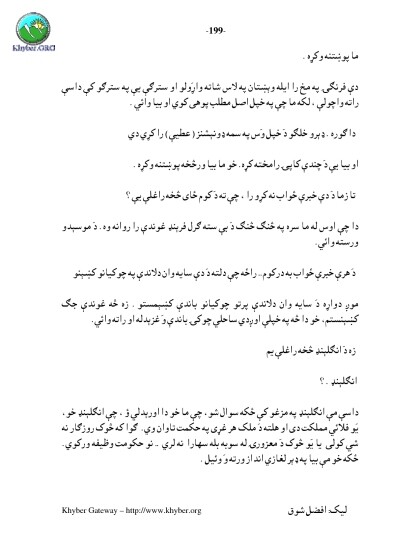 -199-
Khyber.ORG
ما پوښتنه وکړه .
دې فرنګۍ په مخ را ايله وېښتان په لاس شاته واړولو او سترګې يې په سترګو کې داسې
راته واچولې ، لکه ما چې په خپل اصل مطلب پوهی کوي او بيا وائي .
دا ګوره . ډېرو خلګو دَ خپل وَس په سمه ډونېشنز ( عطيې ) را کړي دي
او بيا يې دَ چندې کاپۍ رامخته کړه. خو ما بيا ورڅخه پوښتنه وکړه .
تا زما دَ دې خبرې ځواب نه کړو را ، چې ته دَ کوم ځای څخه راغلې يې ؟
دا چې اوس له ما سره په څنګ څنګ دَ بې سته ګرل فرېنډ غوندې را روانه وه . دَ موسېدو
ورسته وائي.
دَ هرې خبرې ځواب به درکوم.. راځه چې دلته دَ دې سايه وان دلاندې په چوکيانو کښېنو
موږ دواړه دَ سايه وان دلاندې پرتو چوکيانو باندې کښېنستو . زه څه غوندې جګ
کښېنستم، خو دا څه په خپلې اوږدې ساحلي چوکۍ باندې وَغزېدله او راته وائي.
زه دَ انګلېنډ څخه راغلې يم
انګلېنډ . ؟
داسې مې انګلېنډ په مزغو کې ځکه سوال شو ، چې ما خو دا اورېدلي وَ ، چې انګلېنډ خو،
يَو فلاحي مملکت دی او هلته دَ ملک هر غړی په حکمت تاوان وي. ګوا که څوک روزګار نه
شي کولی يا يَو څوک دَ معزورۍ له سوبه بله سهارا نه لري .. نو حکومت وظيفه ورکوي.
ځکه خو مې بيا په ډېر لغازي انداز ورته وَوئيل .
ليک: افضل شوق
Khyber Gateway – http://www.khyber.org